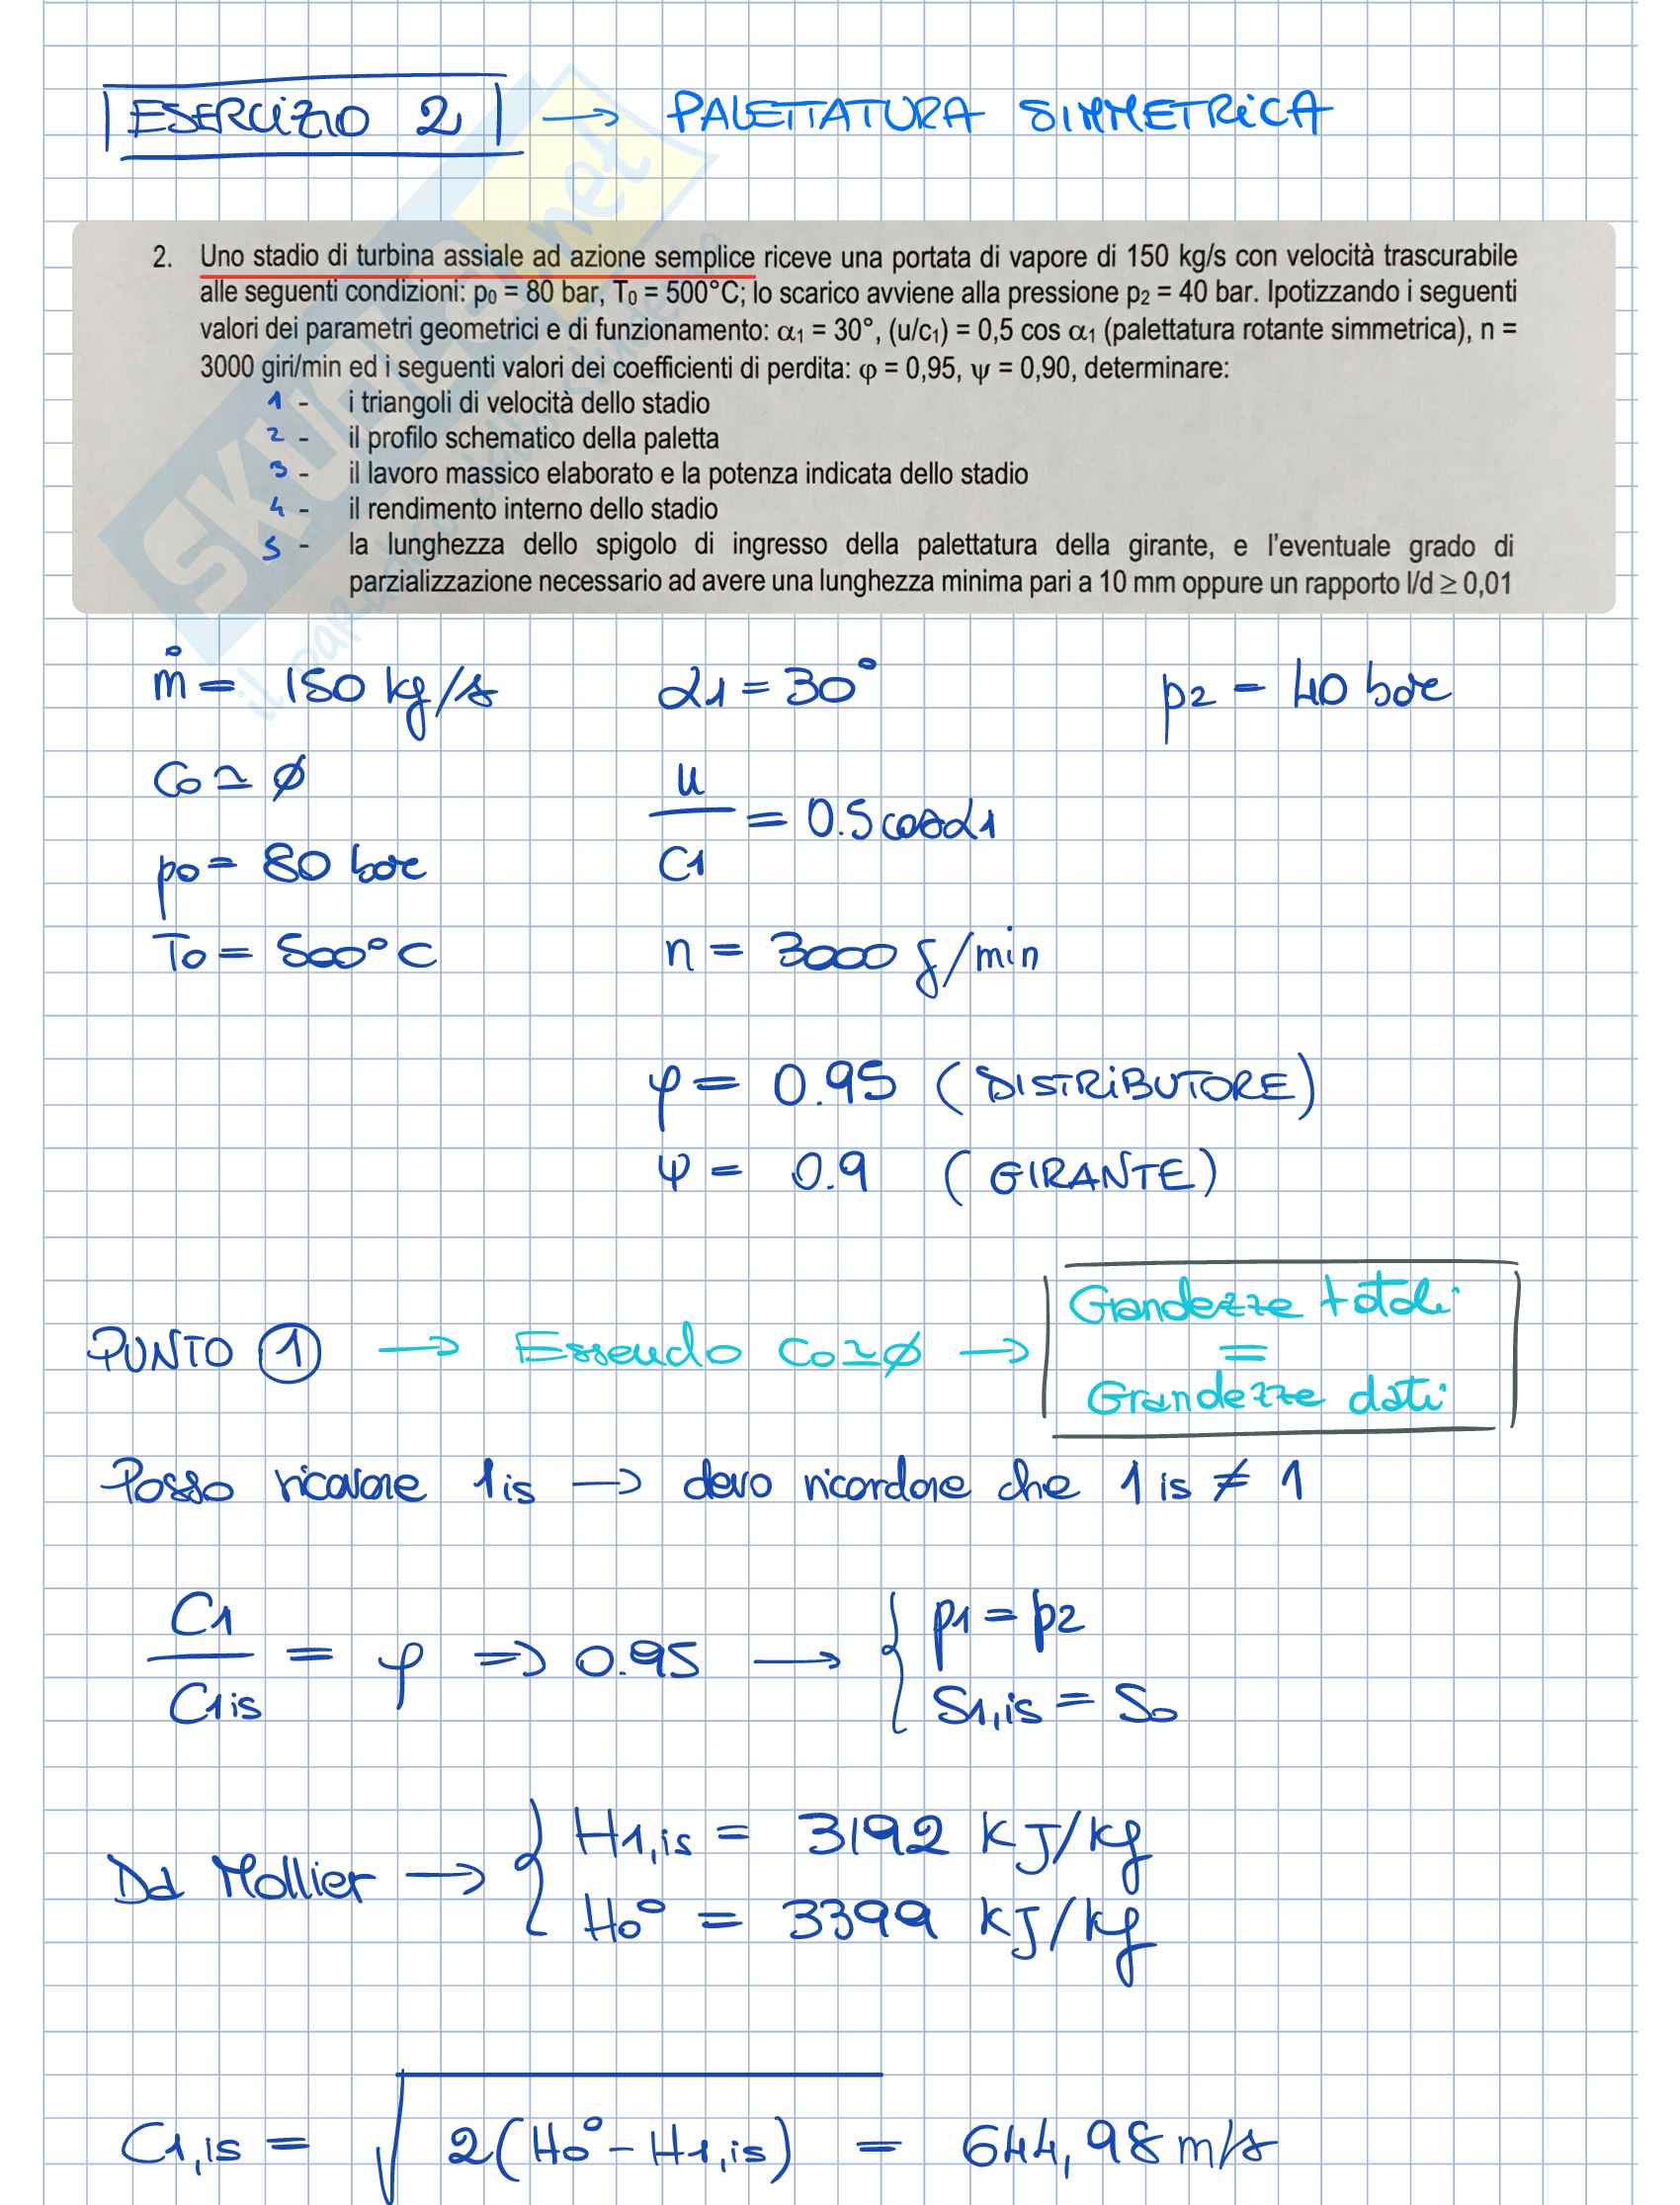 ESERCIZIO 2 → PALETTATURA SIMMETRICA
2. Uno stadio di turbina assiale ad azione semplice riceve una portata di vapore di 150 kg/s con velocità trascurabile
alle seguenti condizioni: p₀ = 80 bar, T₀ = 500°C; lo scarico avviene alla pressione p₂ = 40 bar. Ipotizzando i seguenti
valori dei parametri geometrici e di funzionamento: α₁ = 30°, (u/c₁) = 0,5 cos α₁ (palettatura rotante simmetrica), n =
3000 giri/min ed i seguenti valori dei coefficienti di perdita: φ = 0,95, ψ = 0,90, determinare:
1 - i triangoli di velocità dello stadio
2 - il profilo schematico della paletta
3 - il lavoro massico elaborato e la potenza indicata dello stadio
4 - il rendimento interno dello stadio
5 - la lunghezza dello spigolo di ingresso della palettatura della girante, e l'eventuale grado di
parzializzazione necessario ad avere una lunghezza minima pari a 10 mm oppure un rapporto l/d ≥ 0,01
SKUOLA.net
ṁ = 150 kg/s α1 = 30° p2 = 40 bar
C0 ≃ ø u/C1 = 0.5 cosα1
p0 = 80 bar
T0 = 500°C n = 3000 g/min
φ = 0.95 (DISTRIBUTORE)
ψ = 0.9 (GIRANTE)
PUNTO ① → Essendo C0 ≃ ø → Grandezze totali
=
Grandezze dati
Posso ricavare 1is → devo ricordare che 1is ≠ 1
C1/C1is = φ ⇒ 0.95 → { p1 = p2
S1,is = S0
Da Mollier → { H1,is = 3192 KJ/kg
H0° = 3399 KJ/kg
C1,is = √2(H0° - H1,is) = 644,98 m/s